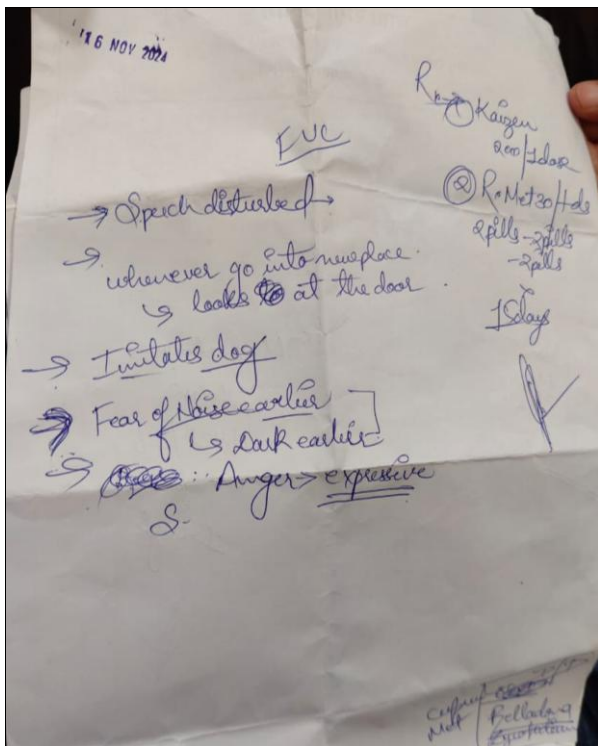 16 NOV 2024
FUC
→ Speech disturbed →
→ whenever go into new place.
↳ looks at the door.
→ Imitates dog
→ Fear of Noise earlier
↳ Dark earlier
→ Anger → expressive
S.
① Kaizen
/1dose
②
2pills - 2pills
- 2pills
15days
Met
Belladona